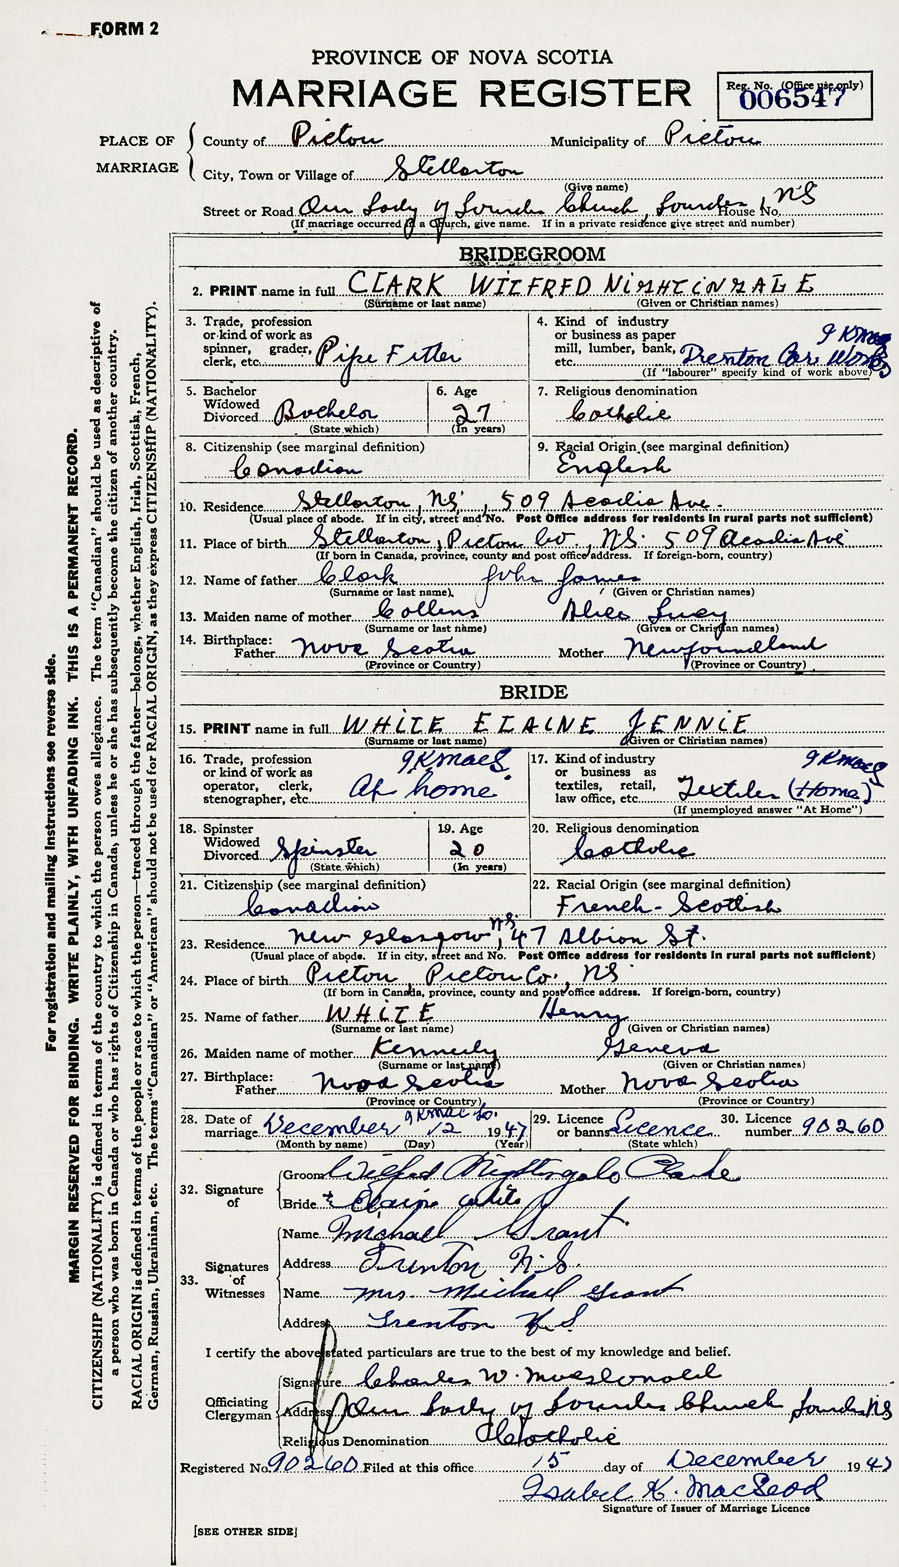 FORM 2
PROVINCE OF NOVA SCOTIA
MARRIAGE REGISTER
Reg. No. (Office use only)
006547
PLACE OF MARRIAGE
County of Pictou Municipality of Pictou
City, Town or Village of Stellarton
(Give name)
Street or Road Our Lady of Lourdes Church, Lourdes, NS House No.
(If marriage occurred in a church, give name. If in a private residence give street and number)
BRIDEGROOM
2. PRINT name in full CLARK WILFRED NIGHTINGALE
(Surname or last name) (Given or Christian names)
3. Trade, profession or kind of work as spinner, grader, clerk, etc. Pipe Fitter
4. Kind of industry or business as paper mill, lumber, bank, etc. Trenton Car Works
(If "labourer" specify kind of work above)
5. Bachelor Widowed Divorced Bachelor
(State which)
6. Age 27
(In years)
7. Religious denomination
Catholic
8. Citizenship (see marginal definition)
Canadian
9. Racial Origin (see marginal definition)
English
10. Residence Stellarton, NS, 509 Acadia Ave.
(Usual place of abode. If in city, street and No. Post Office address for residents in rural parts not sufficient)
11. Place of birth Stellarton, Pictou Co., NS. 509 Acadia Ave
(If born in Canada, province, county and post office address. If foreign-born, country)
12. Name of father Clark John James
(Surname or last name) (Given or Christian names)
13. Maiden name of mother Collins Alice Lucy
(Surname or last name) (Given or Christian names)
14. Birthplace: Father Nova Scotia Mother Newfoundland
(Province or Country) (Province or Country)
BRIDE
15. PRINT name in full WHITE ELAINE JENNIE
(Surname or last name) (Given or Christian names)
16. Trade, profession or kind of work as operator, clerk, stenographer, etc. At home
17. Kind of industry or business as textiles, retail, law office, etc. Textiles (Home)
(If unemployed answer "At Home")
18. Spinster Widowed Divorced Spinster
(State which)
19. Age 20
(In years)
20. Religious denomination
Catholic
21. Citizenship (see marginal definition)
Canadian
22. Racial Origin (see marginal definition)
French-Scottish
23. Residence New Glasgow NS, 47 Albion St.
(Usual place of abode. If in city, street and No. Post Office address for residents in rural parts not sufficient)
24. Place of birth Pictou Pictou Co., NS
(If born in Canada, province, county and post office address. If foreign-born, country)
25. Name of father WHITE Henry
(Surname or last name) (Given or Christian names)
26. Maiden name of mother Kennedy Geneva
(Surname or last name) (Given or Christian names)
27. Birthplace: Father Nova Scotia Mother Nova Scotia
(Province or Country) (Province or Country)
28. Date of marriage December 12 1947
(Month by name) (Day) (Year)
29. Licence or banns Licence
(State which)
30. Licence number 90260
32. Signature of
Groom Wilfred Nightingale Clarke
Bride Elaine White
33. Signatures of Witnesses
Name Michael Grant
Address Trenton N.S.
Name Mrs. Michael Grant
Address Trenton N.S.
I certify the above stated particulars are true to the best of my knowledge and belief.
Officiating Clergyman
Signature Charles W. MacDonald
Address Our Lady of Lourdes Church Lourdes NS
Religious Denomination Catholic
Registered No. 90260 Filed at this office 15 day of December 1947
Isabel K. MacLeod
Signature of Issuer of Marriage Licence
[SEE OTHER SIDE]
For registration and mailing instructions see reverse side.
MARGIN RESERVED FOR BINDING. WRITE PLAINLY, WITH UNFADING INK. THIS IS A PERMANENT RECORD.
CITIZENSHIP (NATIONALITY) is defined in terms of the country to which the person owes allegiance. The term "Canadian" should be used as descriptive of
a person who was born in Canada or who has rights of Citizenship in Canada, unless he or she has subsequently become the citizen of another country.
RACIAL ORIGIN is defined in terms of the people or race to which the person—traced through the father—belongs, whether English, Irish, Scottish, French,
German, Russian, Ukrainian, etc. The terms "Canadian" or "American" should not be used for RACIAL ORIGIN, as they express CITIZENSHIP (NATIONALITY).